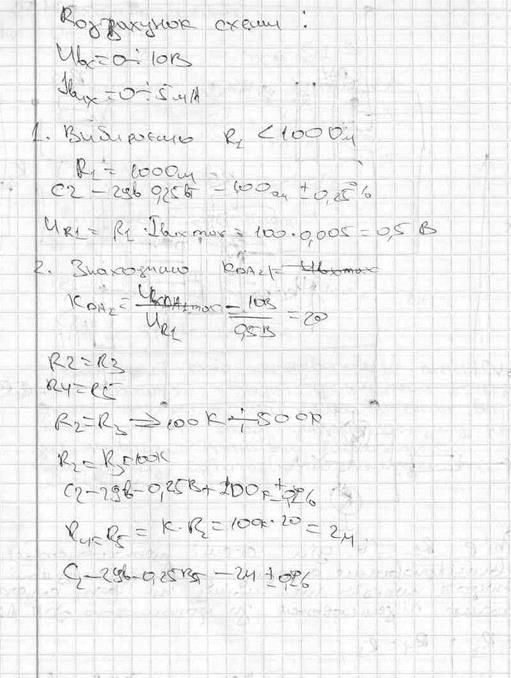 Розрахунок схеми :
Uвх=0÷10В
Iвих=0÷5мА
1. Вибираємо R1 <100Ом
R1 = 100Ом
С2 – 29в 0,25Вт – 100Ом ± 0,25%
UR1 = R1 · Iвих max = 100·0,005=0,5 В
2. Знаходимо KDA2
KDA2 = = 10В / 0,5В = 20
UR1
R2=R3
R4=R5
R2=R3 → 100К ÷ 500К
R2=R3=100К
С2–29в–0,25Вт 100к ±
R4=R5 = K·R2 = 100к·20 = 2М
С2–29в–0,25Вт –2М ±